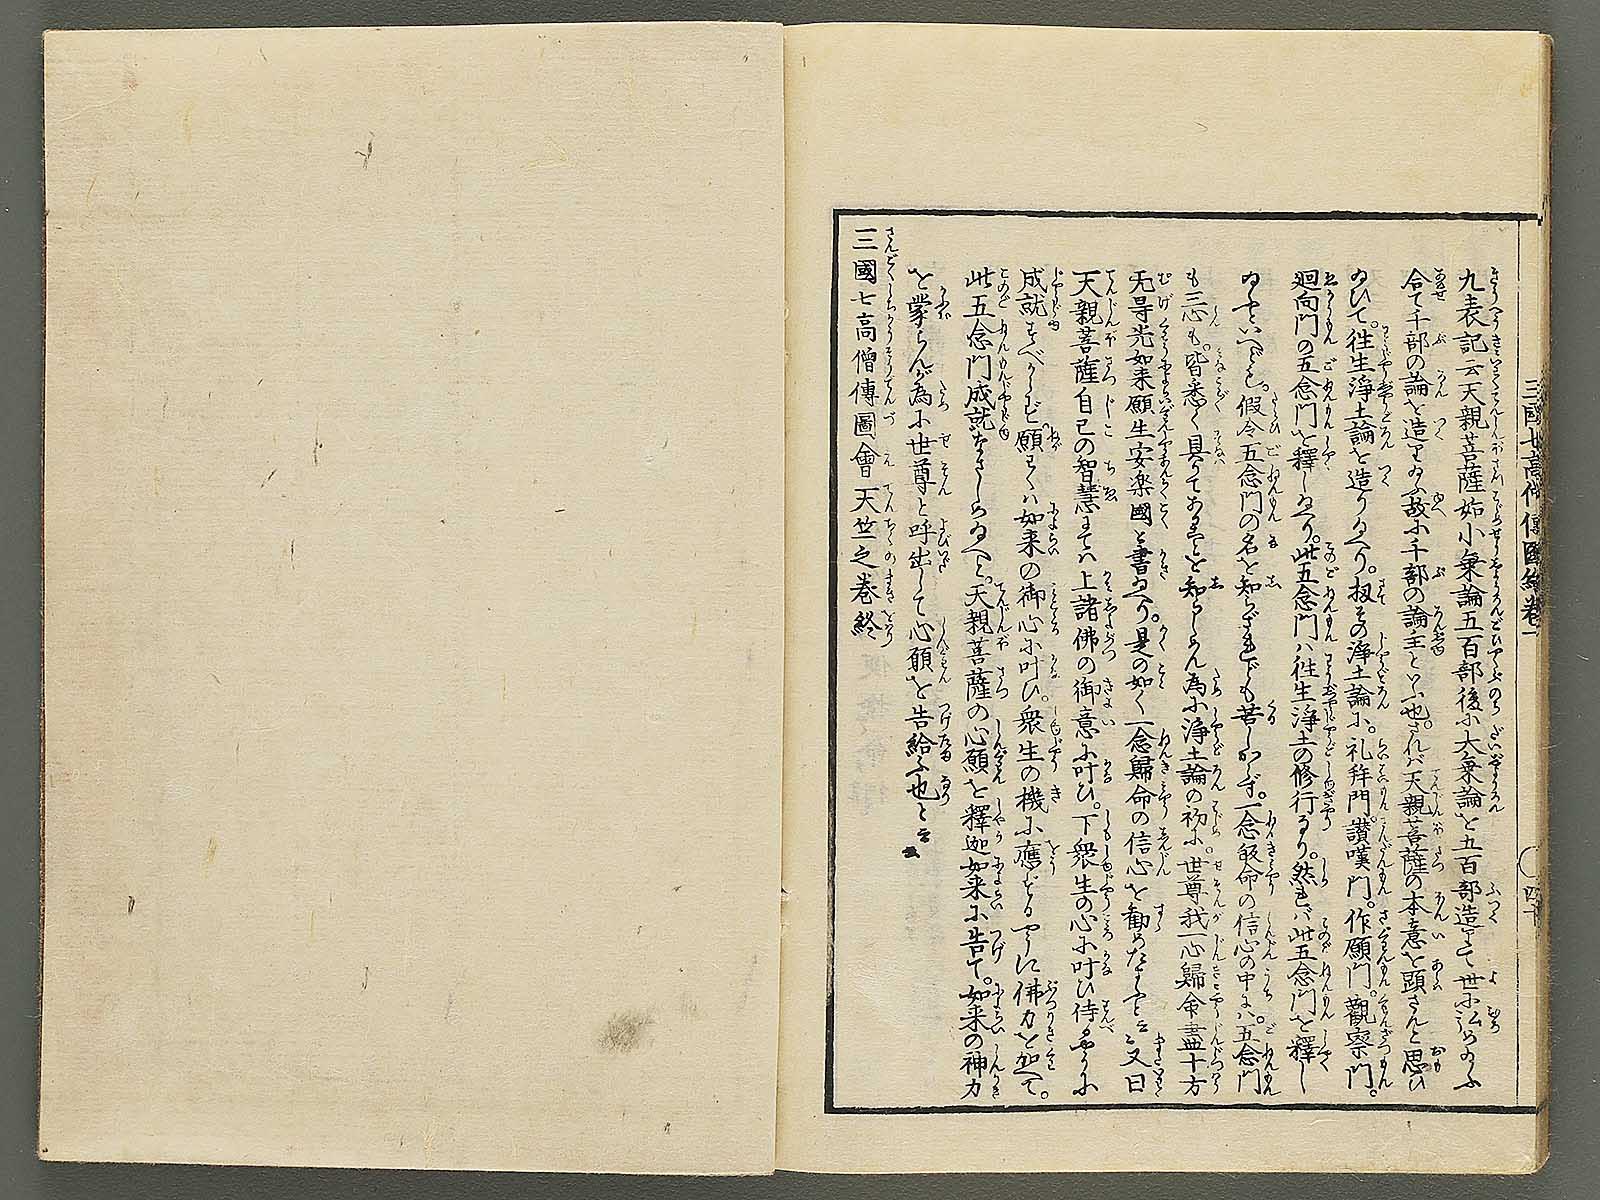 三國七高僧傳圖繪卷一
四十
九表記云天親菩薩始小乗論五百部後小大乗論を五百部造りて世小弘め給ふ
合て千部の論を造り給ふ故小千部の論主といふ也。されバ天親菩薩の本意を顕さんと思ひ
給ひて。往生淨土論を造り給へり。扨その淨土論に。礼拝門。讃嘆門。作願門。觀察門。
廻向門の五念門を釋し給へり。此五念門ハ往生淨土の修行なり。然れバ此五念門を釋し
給ふといへども。假令五念門の名を知らざれども苦しからず。一念皈命の信心の中にハ。五念門
も三心も。皆悉く具りてあることを知らしめん為小淨土論の初に。世尊我一心歸命盡十方
无㝵光如来願生安楽國と書給へり。是の如く一念歸命の信心を勧めたまふと云云又曰
天親菩薩自己の智慧にてハ上諸佛の御意に叶ひ。下衆生の心に叶ひ侍るやうに
成就すべからず。願くハ如来の御心に叶ひ。衆生の機に應ずるやうに佛力を加へて。
此五念門成就なさしめ給へと。天親菩薩の心願を釋迦如来に告て。如来の神力
を蒙らんが為に世尊と呼出して心願を告給ふ也と云云
三國七高僧傳圖會天竺之卷終